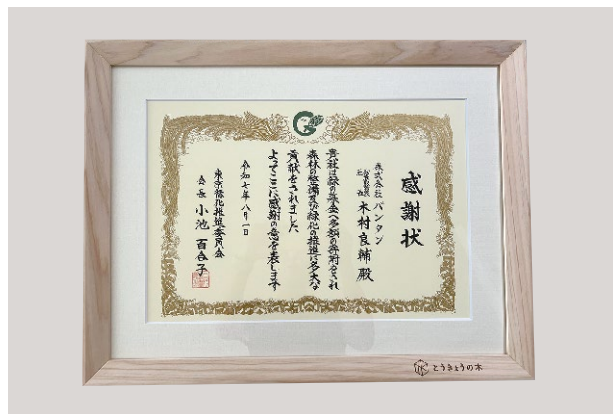 感謝状
株式会社バンタン
木村良輔殿
貴社は緑の募金へ多額の寄附をされ
森林の整備及び緑化の推進に多大な
貢献をされました
よってここに感謝の意を表します
令和七年八月一日
東京緑化推進委員会
会長 小池百合子
とうきょうの木